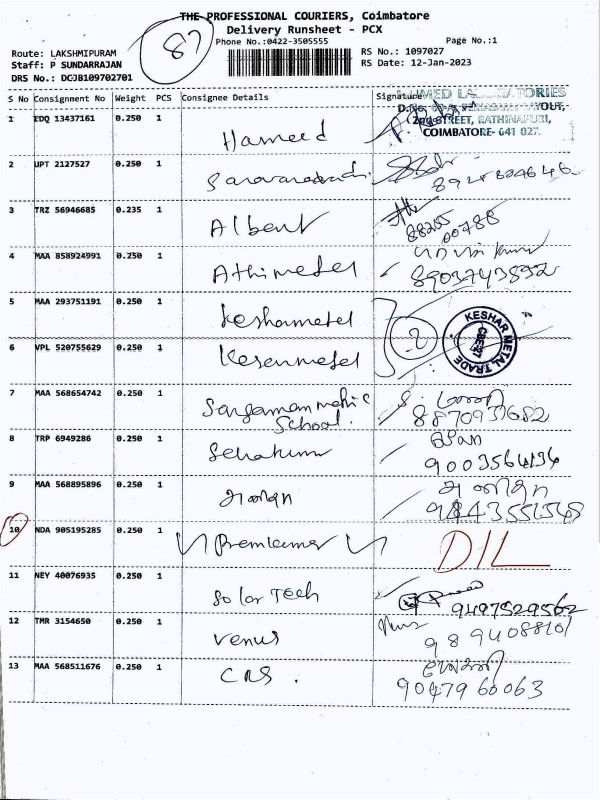 THE PROFESSIONAL COURIERS, Coimbatore
Delivery Runsheet - PCX
87
Phone No.:0422-3505555
Page No.:1
Route: LAKSHMIPURAM
RS No.: 1097027
Staff: P SUNDARRAJAN
RS Date: 12-Jan-2023
DRS No.: DCJB109702701
S No Consignment No Weight PCS Consignee Details Signature
1 EDQ 13437161 0.250 1 Hameed
STREET, RATHINAPURI,
COIMBATORE- 641 027.
2 UPT 2127527 0.250 1
3 TRZ 56946685 0.235 1 Albert 88255 00788
4 MAA 858924991 0.250 1 Athimetel 8903743892
5 MAA 293751191 0.250 1 Keshametel
2
KESHAR METAL TRADE
CBE-27
6 VPL 520755629 0.250 1 Kesenmetel
7 MAA 568654742 0.250 1 School. 8870933682
8 TRP 6949286 0.250 1 9003564134
9 MAA 568895896 0.250 1 9843551548
10 NDA 905195285 0.250 1 Premkumar DIL
11 NEY 40076935 0.250 1 Solar Tech 9497529562
12 TMR 3154650 0.250 1 Venus 9894088101
13 MAA 568511676 0.250 1 CRS. 9047960063